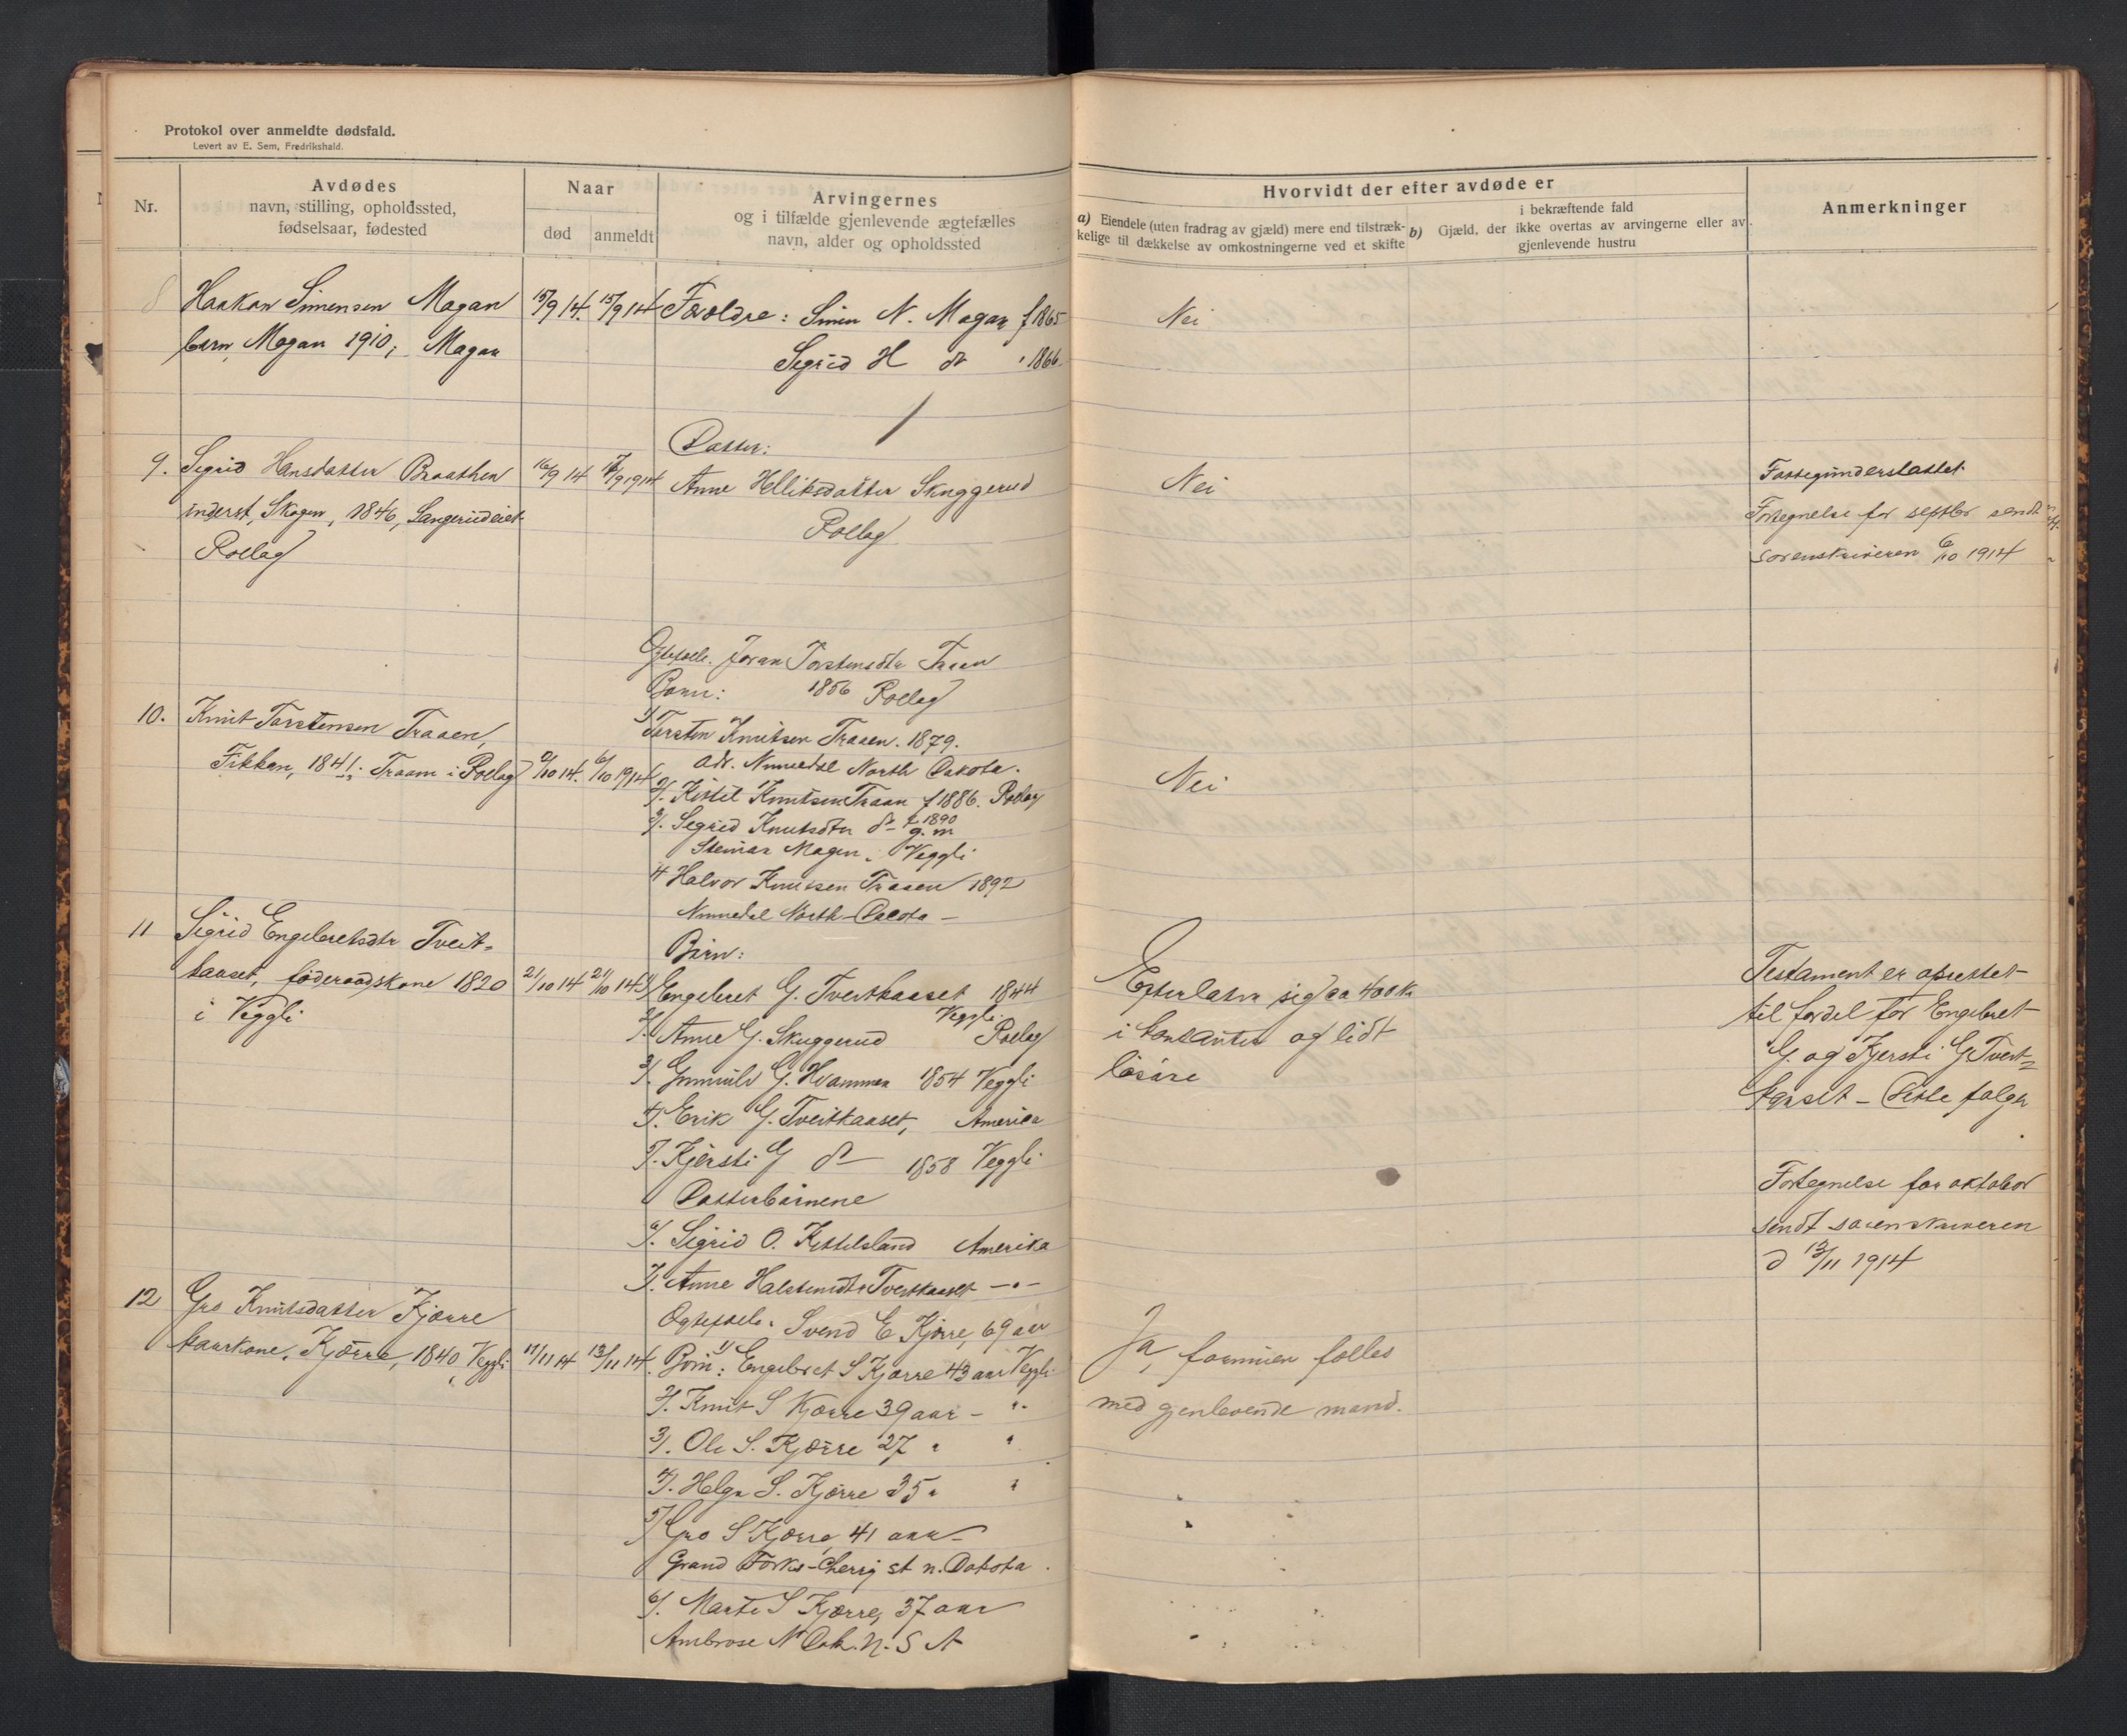 Protokol over anmeldte dødsfald.
Levert av E. Sem, Fredrikshald.
Nr.
Avdødes
navn, stilling, opholdssted,
fødselsaar, fødested
Naar
død
anmeldt
Arvingernes
og i tilfælde gjenlevende ægtefælles
navn, alder og opholdssted
Hvorvidt der efter avdøde er
a) Eiendele (uten fradrag av gjæld) mere end tilstræk-
kelige til dækkelse av omkostningerne ved et skifte
b) Gjæld, der i bekræftende fald
ikke overtas av arvingerne eller av
gjenlevende hustru
Anmerkninger
8 Haakon Simensen Mogan 15/9 14. 15/9 14 Foroldre: Simen N. Mogan f 1865 Nei
barn, Mogan 1910, Mogan
Sigrid H do " 1866
Datter:
9. Sigrid Hansdatter Braathen 16/9 14 17/9 1914 Anne Helliksdatter Skuggerud Nei
inderst, Skogen, 1846, Langerudeiet
Rollag
Rollag
Fattigunderstøttet
Fortegnelse for septbr sendt
sorenskriveren 6/10 1914
Ægtefælle. Joran Torstensdtr Traaen
1856 Rollag
Børn:
10. Knut Torstensen Traaen,
Fikkan, 1841. Traaen i Rollag 2/10 14. 6/10 1914
1/ Torsten Knutsen Traaen. 1879.
adr. Numedal North Dakota.
2/. Kittil Knutsen Traaen f 1886. Rollag
3/. Sigrid Knutsdtr do f 1890
g. m
Steinar Mogen, Veggli
4 Halvor Knutsen Traaen 1892
Numedal North-Dacota -
Nei
11 Sigrid Engebretsdtr Tveit-
kaaset, føderaadskone 1820 21/10 14 21/10 14
i Veggli
Børn:
1/ Engebret G. Tveitkaaset 1844
Veggli
2/. Anne G. Skuggerud Rollag
3/. Gunnuld G. Hvammen 1854 Veggli
4/. Erik G. Tveitkaaset, America
5/. Kjersti G do 1858 Veggli
Datterbørnene
6/. Sigrid O. Kittilsland Amerika
7/. Anne Halstensdtr Tveitkaaset - " -
Efterlater sig ca 400 Kr
i kontanter og lidt
løsøre
Testament er oprettet
til fordel for Engebret
G. og Kjersti G Tveit-
kaaset - Dette følger
Fortegnelse for oktober
sendt sorenskriveren
d 13/11 1914
12 Gro Knutsdatter Kjørre
kaarkone, Kjørre, 1840, Veggli 11/11 14 13/11 14.
Ægtefælle. Svend E Kjørre, 69 aar
Børn: 1/ Engebret S Kjørre 43 aar Veggli
2/. Knut S Kjørre 39 aar - "
3/. Ole S. Kjørre 27 " "
4/. Helge S. Kjørre 35 " "
5/ Gro S Kjørre, 41 aar
Grand Forks-Cherry st n. Dakota.
6/. Marte S Kjørre, 37 aar
Ambrose N Dak. U. S A
Ja, formuen fælles
med gjenlevende mand.